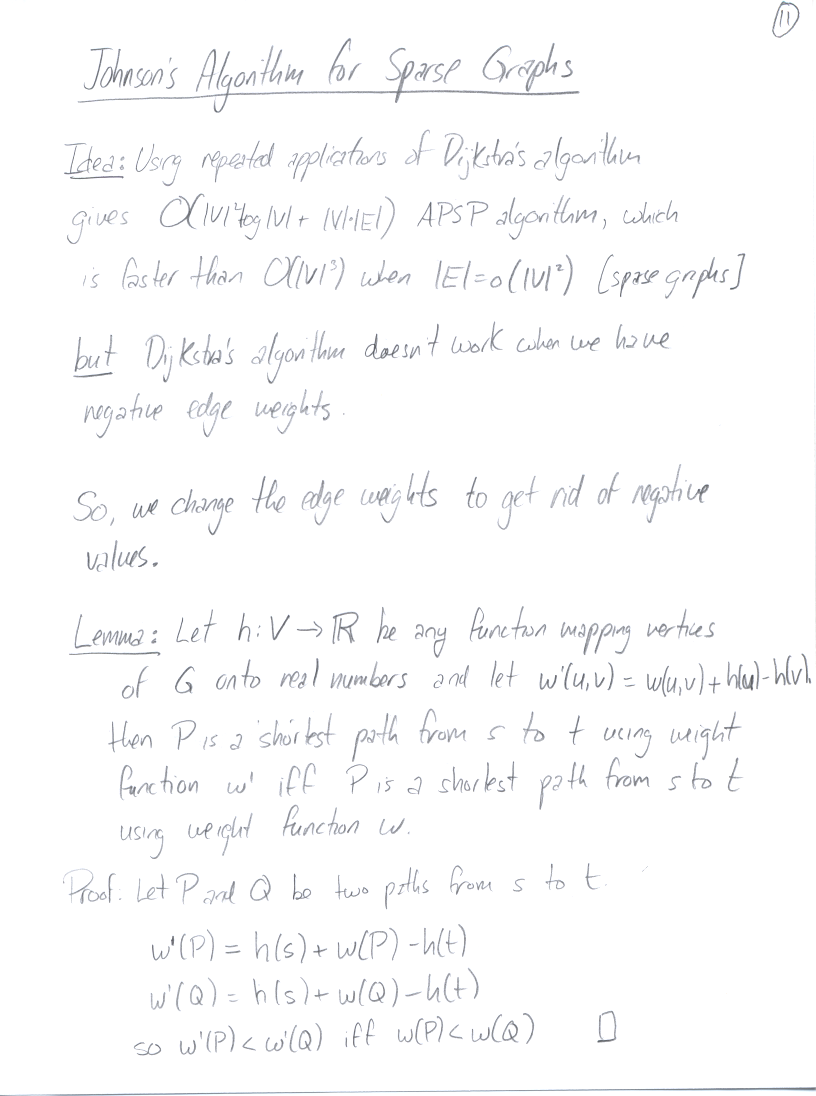 11
Johnson's Algorithm for Sparse Graphs
Idea: Using repeated applications of Dijkstra's algorithm
gives O(|V|² log |V| + |V|·|E|) APSP algorithm, which
is faster than O(|V|³) when |E| = o(|V|²) [sparse graphs]
but Dijkstra's algorithm doesn't work when we have
negative edge weights.
So, we change the edge weights to get rid of negative
values.
Lemma: Let h: V → ℝ be any function mapping vertices
of G onto real numbers and let w'(u,v) = w(u,v) + h(u) - h(v).
then P is a shortest path from s to t using weight
function w' iff P is a shortest path from s to t
using weight function w.
Proof: Let P and Q be two paths from s to t.
w'(P) = h(s) + w(P) - h(t)
w'(Q) = h(s) + w(Q) - h(t)
so w'(P) < w'(Q) iff w(P) < w(Q) □